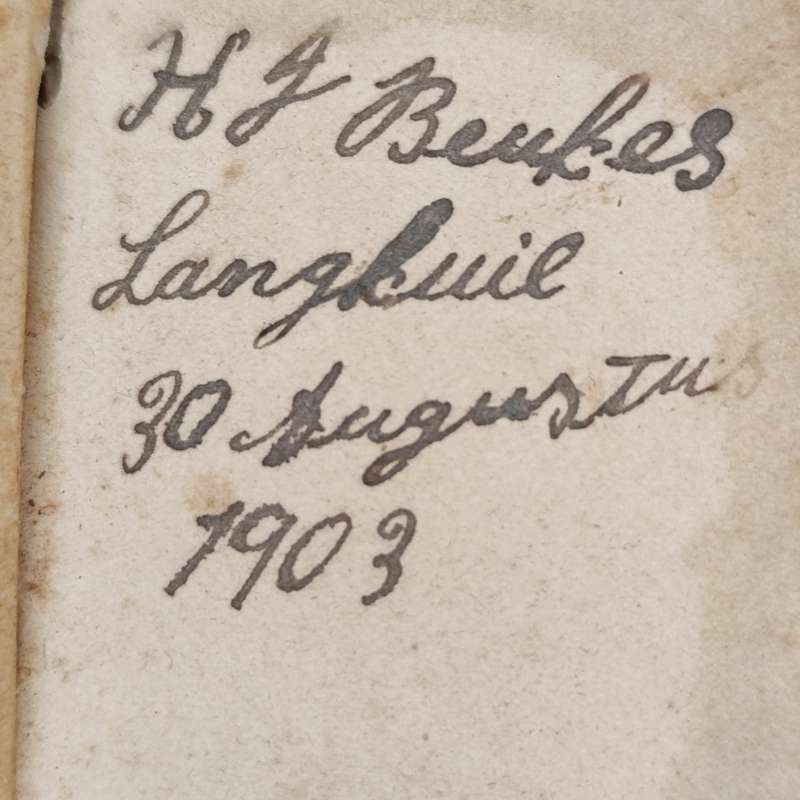 H J Beukes
Langkuil
30 Augustus
1903